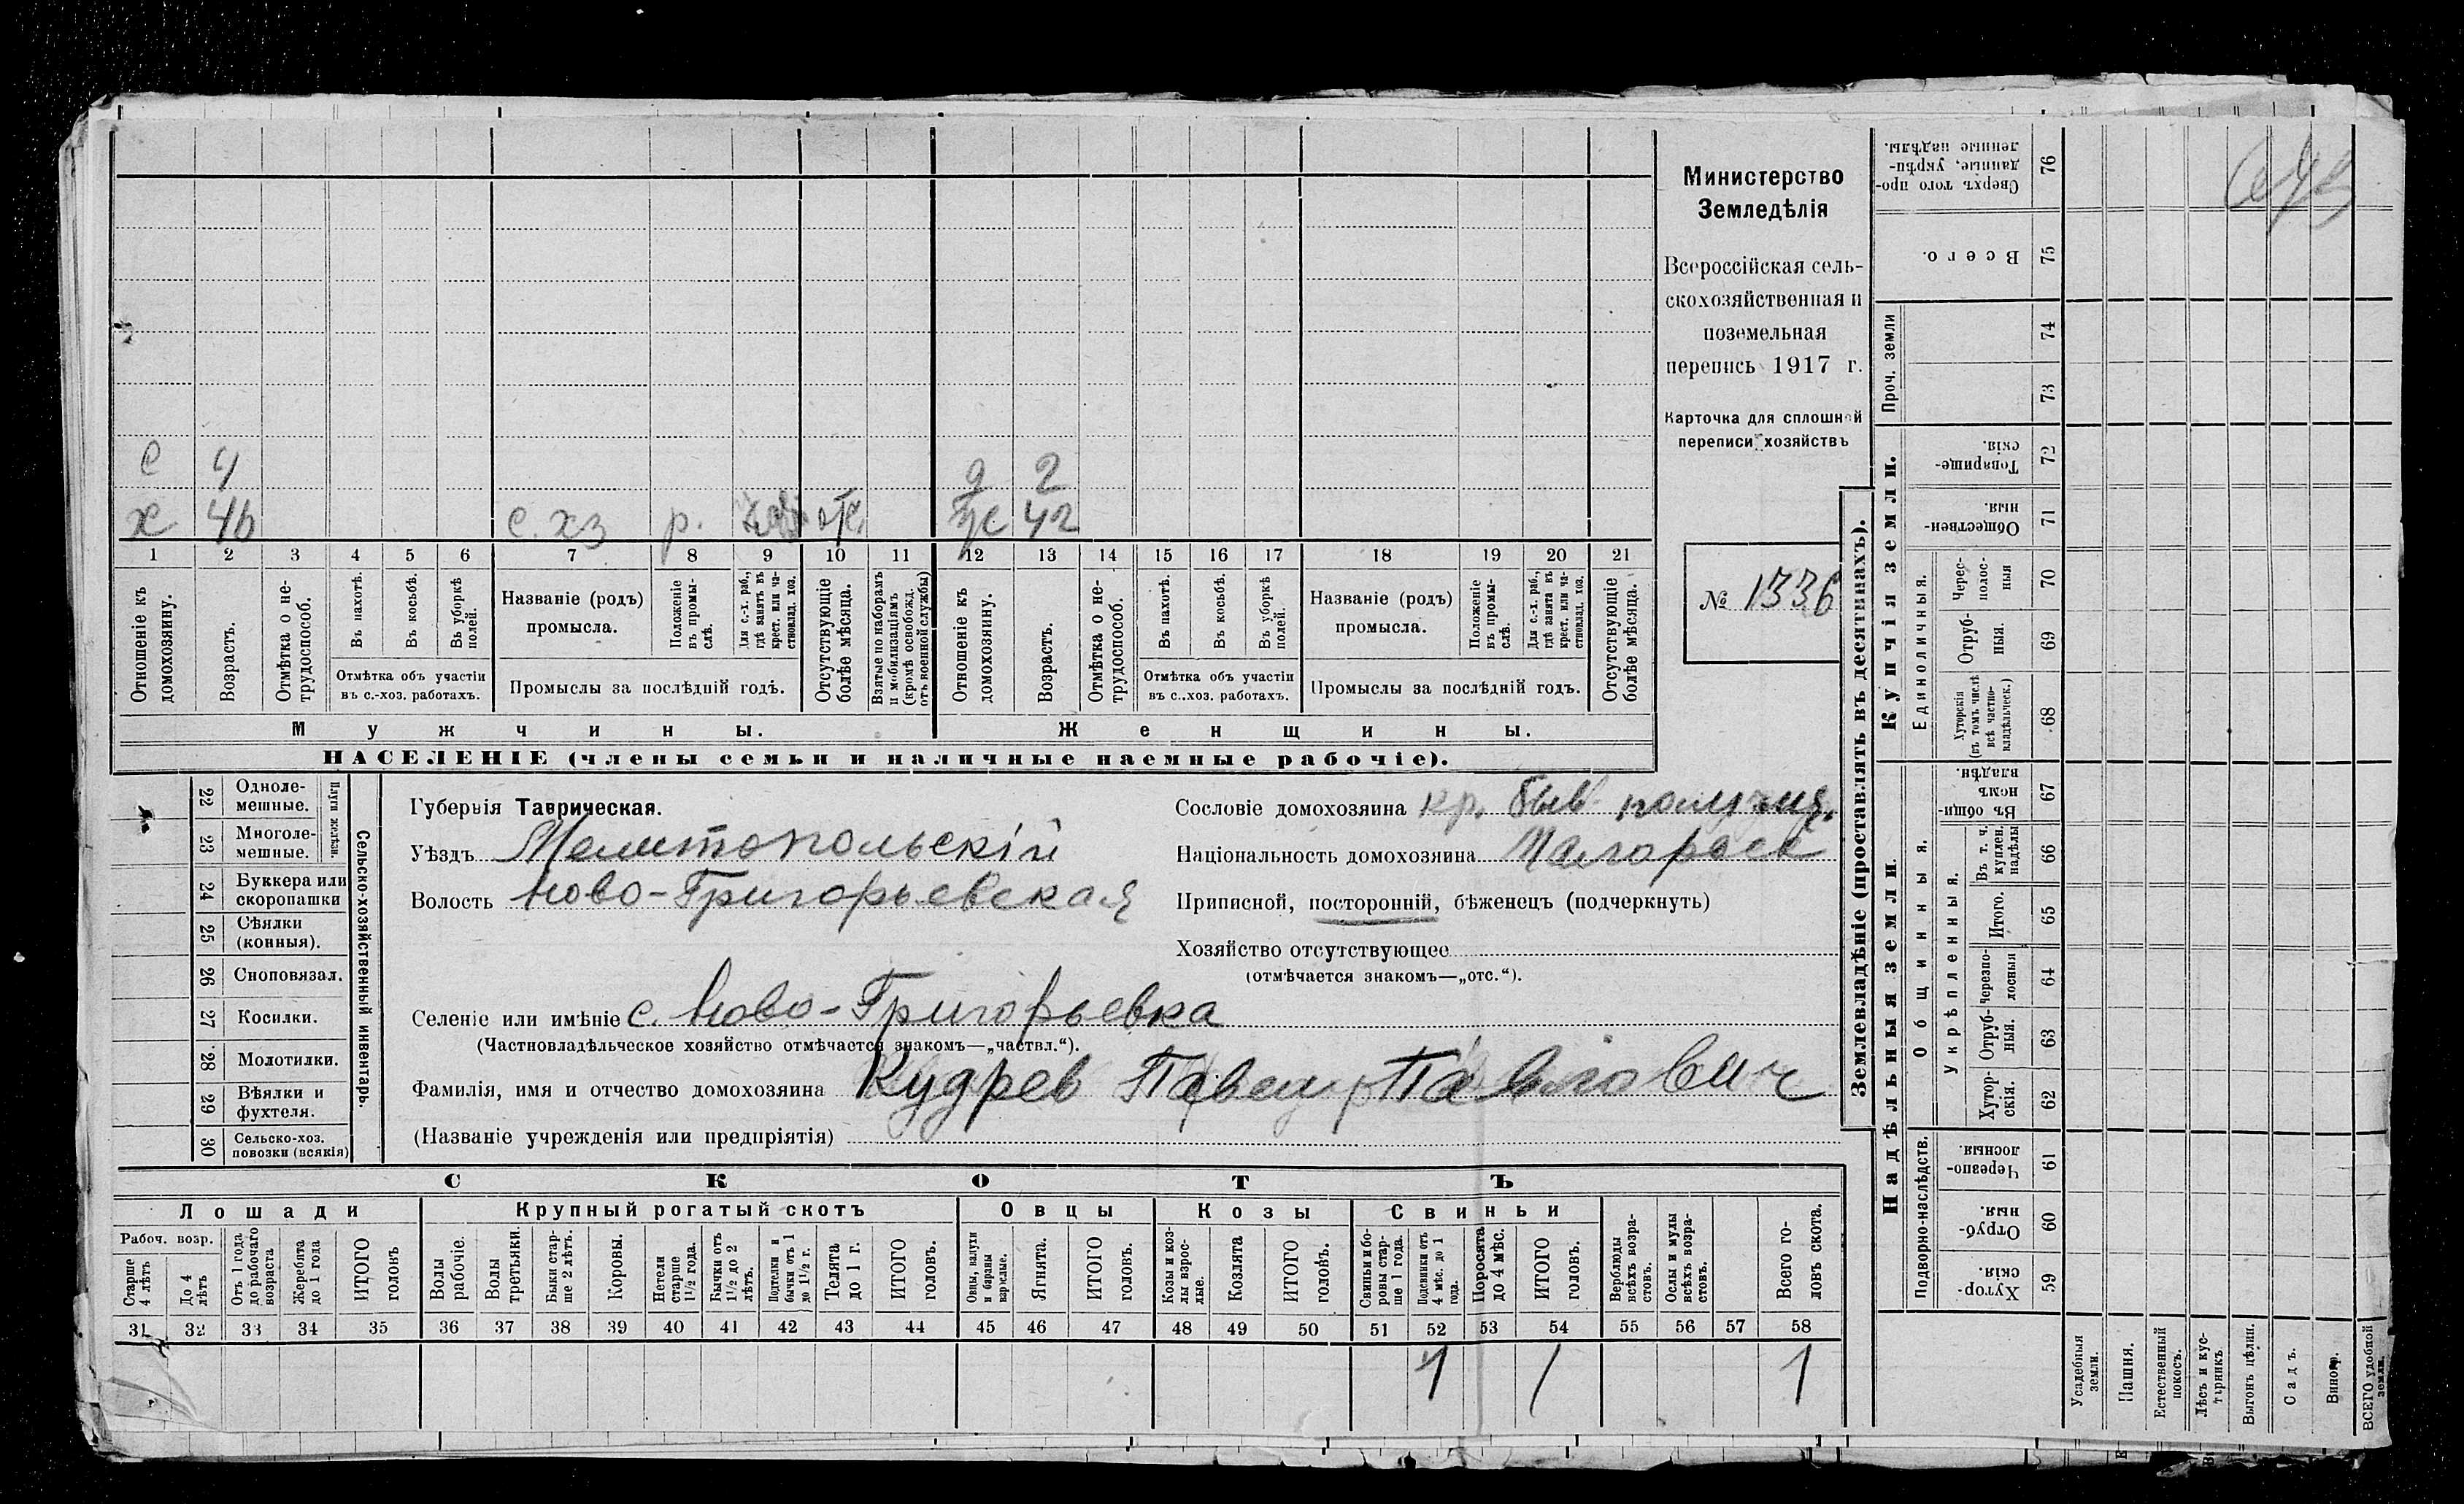 Министерство
Земледѣлія
Всероссійская сель-
скохозяйственная и
поземельная
перепись 1917 г.
Карточка для сплошной
переписи хозяйствъ
№ 1336
с 4 д 2
х 46 с. хз р. отс. ж 42
1 2 3 4 5 6 7 8 9 10 11 12 13 14 15 16 17 18 19 20 21
Отношеніе къ домохозяину.
Возрастъ.
Отмѣтка о не-трудоспособ.
Въ пахотѣ.
Въ косьбѣ.
Въ уборкѣ полей.
Отмѣтка объ участіи
въ с.-хоз. работахъ.
Названіе (родъ)
промысла.
Положеніе въ промы-слѣ.
Для с.-х. раб., гдѣ занятъ въ крест. или ча-стновлад. хоз.
Промыслы за послѣдній годъ.
Отсутствующіе болѣе мѣсяца.
Взятые по наборамъ и мобилизаціямъ (кромѣ освобожд. отъ военной службы)
Отношеніе къ домохозяину.
Возрастъ.
Отмѣтка о не-трудоспособ.
Въ пахотѣ.
Въ косьбѣ.
Въ уборкѣ полей.
Отмѣтка объ участіи
въ с.-хоз. работахъ.
Названіе (родъ)
промысла.
Положеніе въ промы-слѣ.
Для с.-х. раб., гдѣ занята въ крест. или ча-стновлад. хоз.
Промыслы за послѣдній годъ.
Отсутствующіе болѣе мѣсяца.
Мужчины.
Женщины.
НАСЕЛЕНІЕ (члены семьи и наличные наемные рабочіе).
22 Одноле-мешные.
23 Многоле-мешные.
Плуги желѣзн.
24 Буккера или скоропашки
25 Сѣялки (конныя).
26 Сноповязал.
27 Косилки.
28 Молотилки.
29 Вѣялки и фухтеля.
30 Сельско-хоз. повозки (всякія)
Сельско-хозяйственный инвентарь.
Губернія Таврическая.
Уѣздъ Мелитопольскій
Волость Ново-Григорьевская
Сословіе домохозяина кр. быв.
Національность домохозяина Малоросс
Приписной, посторонній, бѣженецъ (подчеркнуть)
Хозяйство отсутствующее
(отмѣчается знакомъ—„отс.“).
Селеніе или имѣніе с. Ново-Григорьевка
(Частновладѣльческое хозяйство отмѣчается знакомъ—„частвл.“).
Фамилія, имя и отчество домохозяина Кудрев Павел Павлович
(Названіе учрежденія или предпріятія)
СКОТЪ
Лошади
Крупный рогатый скотъ
Овцы
Козы
Свиньи
Рабоч. возр.
Старше 4 лѣтъ
До 4 лѣтъ
Отъ 1 года до рабочаго возраста
Жеребята до 1 года
ИТОГО головъ
Волы рабочіе.
Волы третьяки.
Быки стар-ше 2 лѣтъ.
Коровы.
Нетели старше 1½ года.
Бычки отъ 1½ до 2 лѣтъ.
Подтелки и бычки отъ 1 до 1½ г.
Телята до 1 г.
ИТОГО головъ.
Овцы, валухи и бараны взрослые.
Ягнята.
ИТОГО головъ.
Козы и коз-лы взрос-лые.
Козлята
ИТОГО головъ.
Свиньи и бо-ровы стар-ше 1 года.
Подсвинки отъ 4 мѣс. до 1 года.
Поросята до 4 мѣс.
ИТОГО головъ.
Верблюды всѣхъ возра-стовъ.
Ослы и мулы всѣхъ возра-стовъ.
Всего го-ловъ скота.
31 32 33 34 35 36 37 38 39 40 41 42 43 44 45 46 47 48 49 50 51 52 53 54 55 56 57 58
1 1 1
Землевладѣніе (проставлять въ десятинахъ).
Купчія земли.
Надѣльныя земли.
Сверхъ того про-данные, укрѣп-ленные надѣлы. 76
Всего. 75
Проч. земли 74
73
Товарище-скія. 72
Обществен-ныя. 71
Единоличныя.
Черес-полос-ныя 70
Отруб-ныя. 69
Хуторскія (въ томъ числѣ всѣ частно-владѣльческ.) 68
Общинныя.
Въ общи-номъ владѣн. 67
Укрѣпленныя.
Въ т. ч. куплен. надѣлы 66
Итого. 65
Черезпо-лосныя 64
Отруб-ныя. 63
Хутор-скія. 62
Подворно-наслѣдств.
Черезпо-лосныя 61
Отруб-ныя. 60
Хутор-скія. 59
Усадебныя земли.
Пашня.
Естественный покосъ.
Лѣсъ и кус-тарникъ.
Выгонъ цѣлин.
Садъ.
Виногр.
ВСЕГО удобной земли.